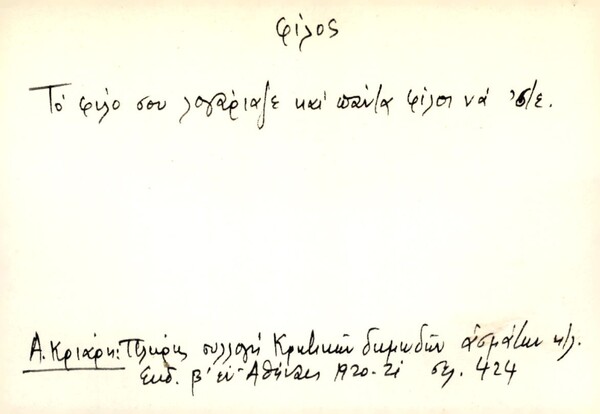 φίλος
Τό φίλο σου λογάριαζε καί πάντα φίλοι νά 'στε.
Α. Κριάρη: Πλήρης συλλογή Κρητικών δημωδών ἀσμάτων κτλ.
Ἐκδ. β' ἐν Ἀθήναις 1920-21 σελ. 424